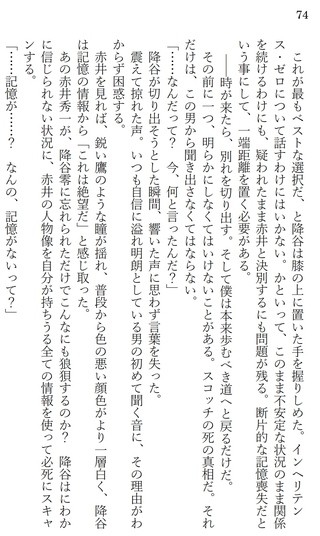 74
これが最もベストな選択だ、と降谷は膝の上に置いた手を握りしめた。インヘリテン
ス・ゼロについて話すわけにはいかない。かといって、このまま不安定な状況のまま関係
を続けるわけにも、疑われたまま赤井と決別するにも問題が残る。断片的な記憶喪失だと
いう事にして、一端距離を置く必要がある。
――時が来たら、別れを切り出す。そして僕は本来歩むべき道へと戻るだけだ。
その前に一つ、明らかにしなくてはいけないことがある。スコッチの死の真相だ。それ
だけは、この男から聞き出さなくてはならない。
「……なんだって？　今、何と言ったんだ？」
降谷が切り出そうとした瞬間、響いた声に思わず言葉を失った。
震えて掠れた声。いつも自信に溢れ明朗としている男の初めて聞く音に、その理由がわ
からず困惑する。
赤井を見れば、鋭い鷹のような瞳が揺れ、普段から色の悪い顔色がより一層白く、降谷
は記憶の情報から「これは絶望だ」と感じ取った。
あの赤井秀一が、降谷零に忘れられただけでこんなにも狼狽するのか？　降谷はにわか
に信じられない状況に、赤井の人物像を自分が持ちうる全ての情報を使って必死にスキャ
ンする。
「……記憶が……？　なんの、記憶がないって？」